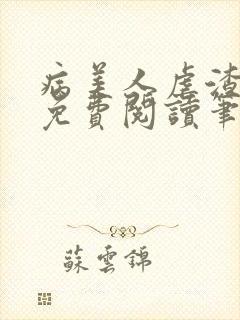 病美人虐渣
免費閱讀筆
蘇雲錦